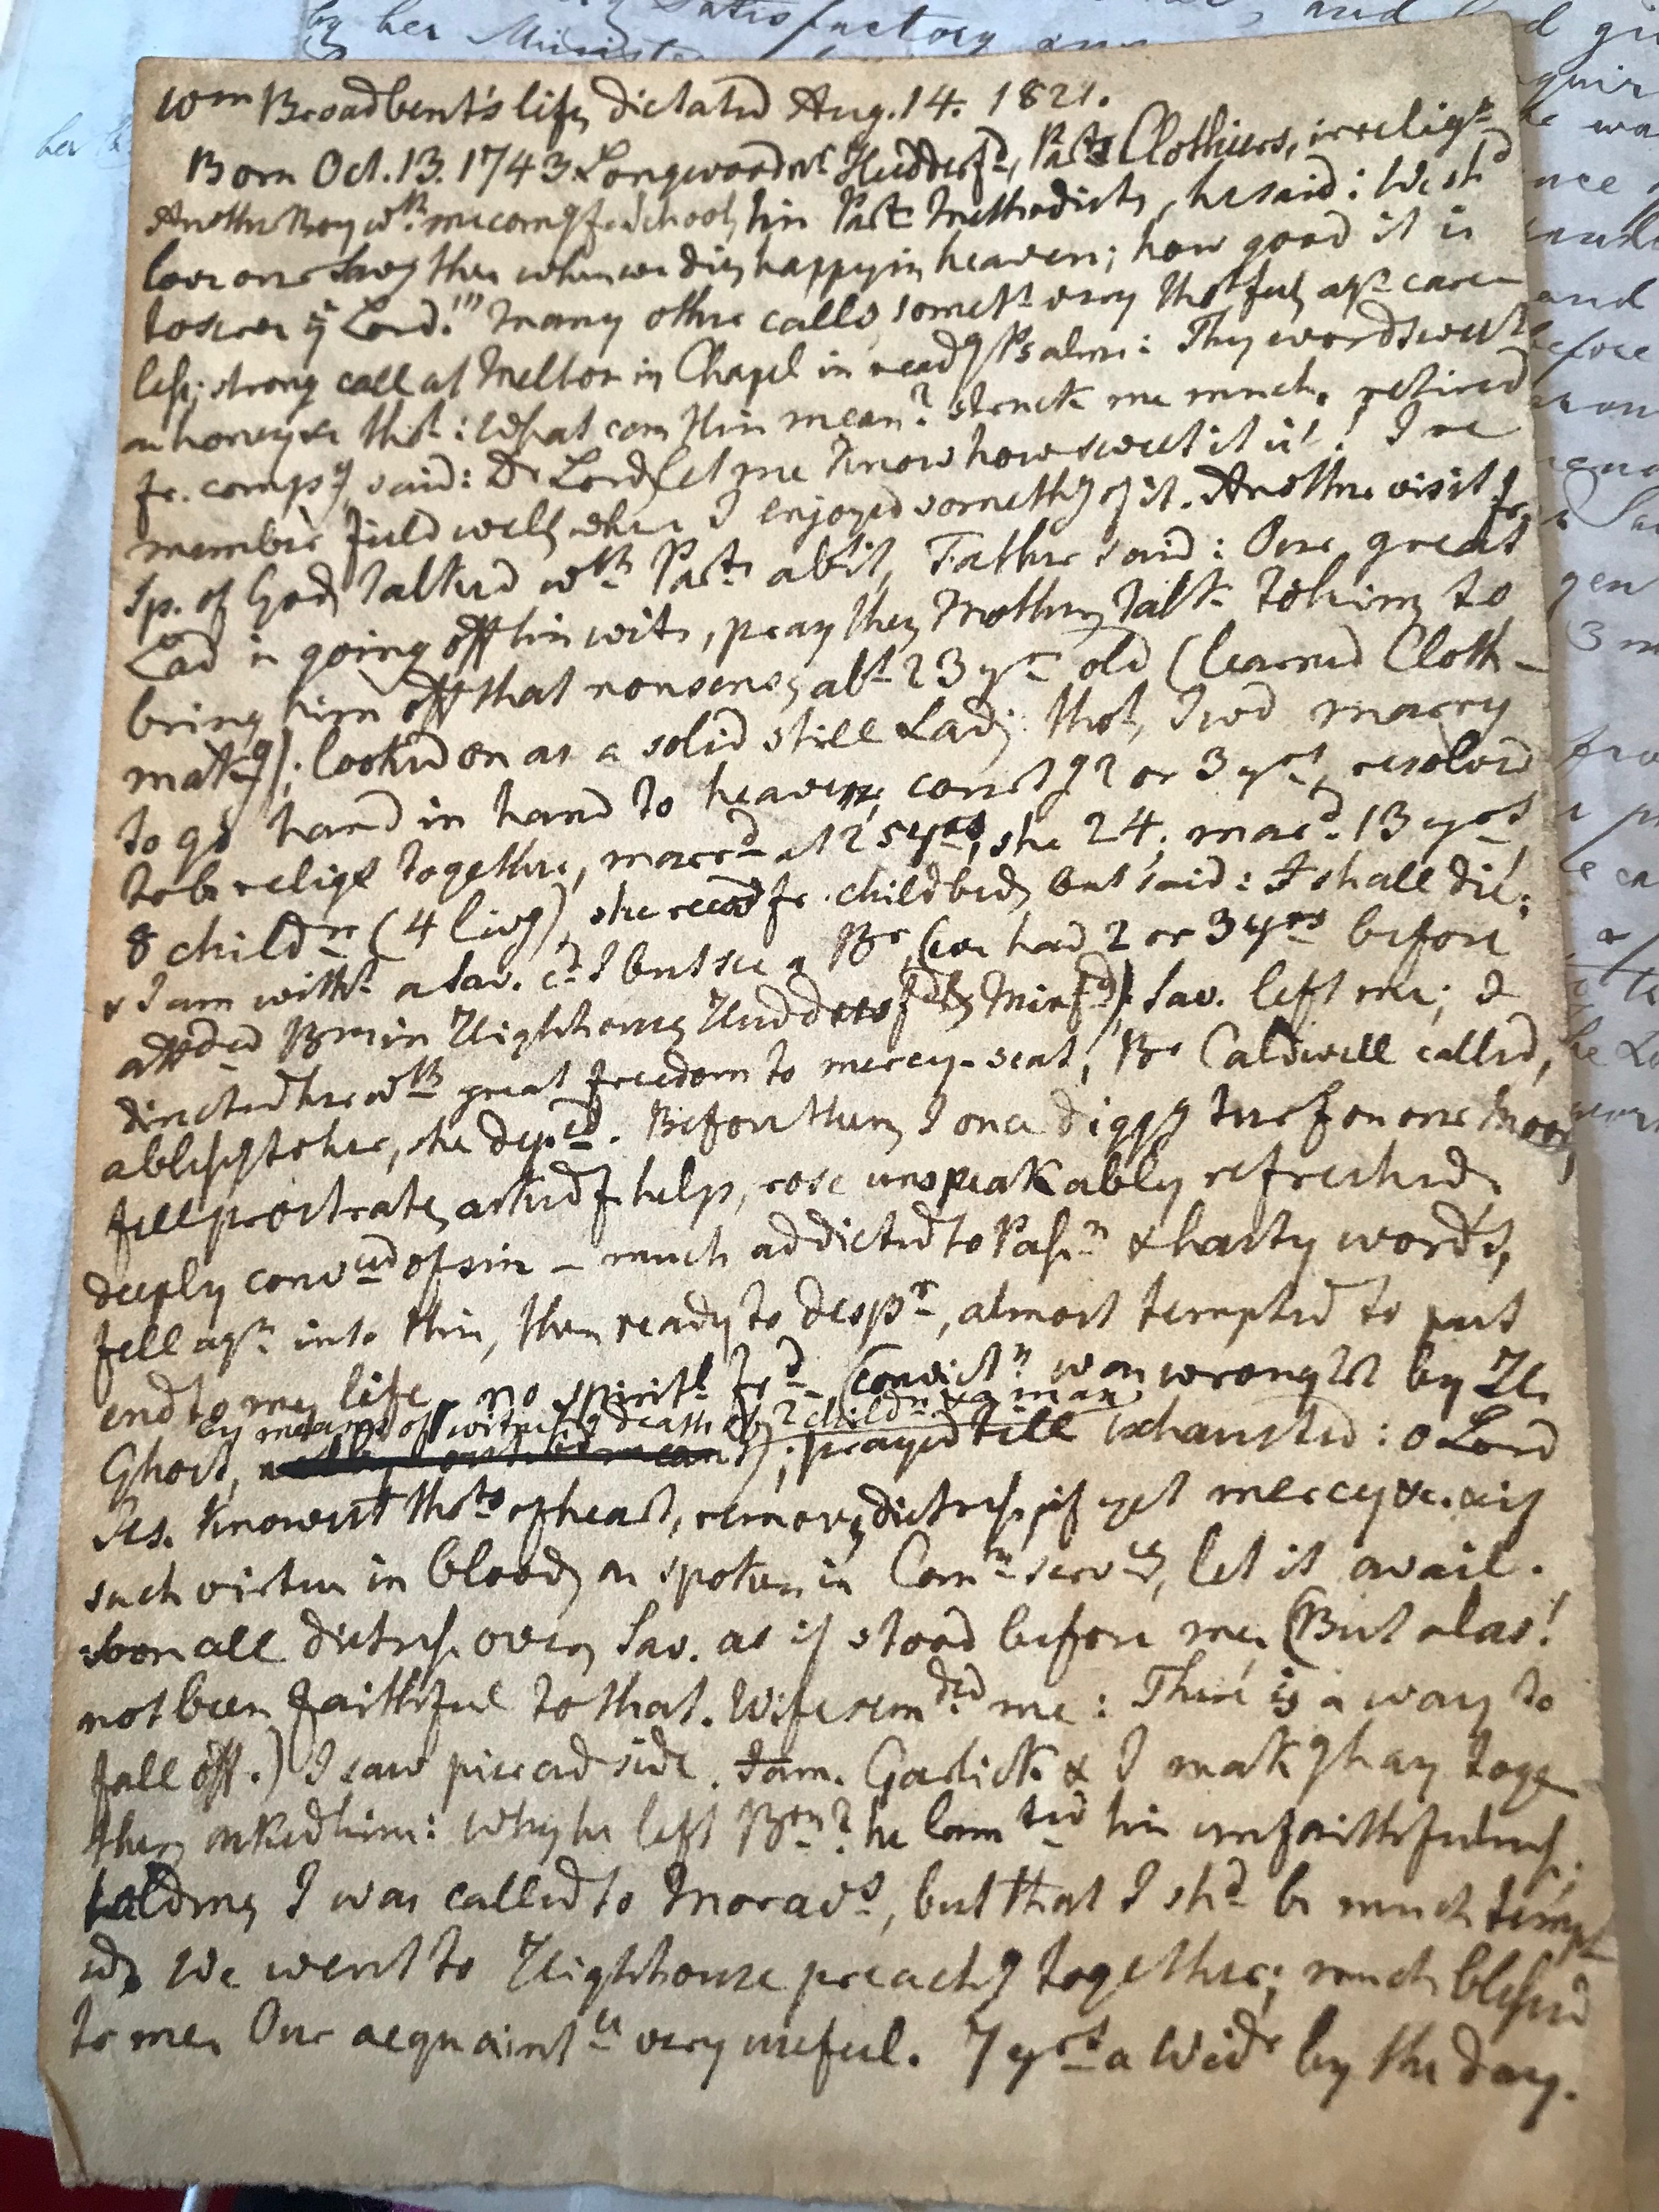 by her Minist satisfactory and
Wm Broadbent's life, dictated Aug. 14. 1821.
Born Oct. 13. 1743 Longwood nr Hudderfd, Parts Clothiers, irreligs
Another Boy wth me comg fr school, his Parts Methodists, he said: We shd
love one anothr then when we die, happy in heaven; how good it is
to serve ye Lord." Many other calls, somets very thotful, agn care-
less; strong call at Meltom in Chapel in readg Psalms: Thy word sweetr
an honey &c thot: What can this mean? struck me much, retired
fr. compy, said: Dr Lord, let me know how sweet it is! I re
membr field well, where I enjoyed somethg of it. Another visit fr.
Sp. of God, talked wth Parts abt it, Father said: Our great
Lad is going off his wits, pray thee, Mother, talk to him, to
bring him off that nonsense, abt 23 yrs old (learned Cloth-
makg); looked on as a solid still Lad; thot, I wd marry
to go hand in hand to heaven, courtg 2 or 3 yrs, resolved
to be religs together, marrd at 25 yrs, she 24; mard 13 yrs,
8 childrn (4 livg), she recod fr. childbed, but said: I shall die;
& I am witht a Sav. cd I but see a Br, (we had 2 or 3 yrs before
attded Brn in Highhouse, Huddersfd, Mirfd) Sav. left me; I
directed her wth great freedom to mercy-seat, Br Caldwell called,
a blessg to her, she depd. Before then, I once diggg turf on one Moor,
fell prostrate, asked fr help, rose unspeakably refreshed,
deeply convced of sin – much addicted to Passn & hasty words,
fell agn into this, then ready to despr, almost tempted to put
end to my life, no spiritl frd – (convictn was wrought by H.
by means of witnessg death of 2 childrn & a man
Ghost, ); prayed till exhausted: O Lord
Jes. knowest thots of heart, remove, distress, if yet mercy &c. & if
such virtue in blood, as spoken in Comn serve, let it avail.
soon all distress over, Sav. as if stood before me, (But alas!
not been faithful to that. Wife remded me: There is a way to
fall off.) I saw pierced side. Jam. Garlick & I makg hay toge
ther, asked him: Why he left Brn? he lamted his unfaithfulness;
told me, I was called to Moravs, but that I shd be much tempt
ed, We went to Highhouse preachg together; much blessed
to me, Our acquaintce very useful. 7 yrs a Widr by the day.